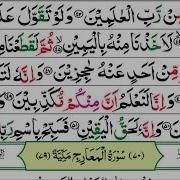 مِّنْ رَّبِّ الْعٰلَمِيْنَ ﴿٤٣﴾ وَلَوْ تَقَوَّلَ
لَاَخَذْنَا مِنْهُ بِالْيَمِيْنِ ﴿٤٥﴾ ثُمَّ لَقَطَعْنَا
مِّنْ اَحَدٍ عَنْهُ حٰجِزِيْنَ ﴿٤٧﴾ وَاِنَّهٗ
وَاِنَّا لَنَعْلَمُ اَنَّ مِنْكُمْ مُّكَذِّبِيْنَ
وَاِنَّهٗ لَحَقُّ الْيَقِيْنِ ﴿٥١﴾ فَسَبِّحْ بِاسْمِ
(٧٠) سُوْرَةُ الْمَعَارِجِ مَكِّيَّةٌ (٧٩)